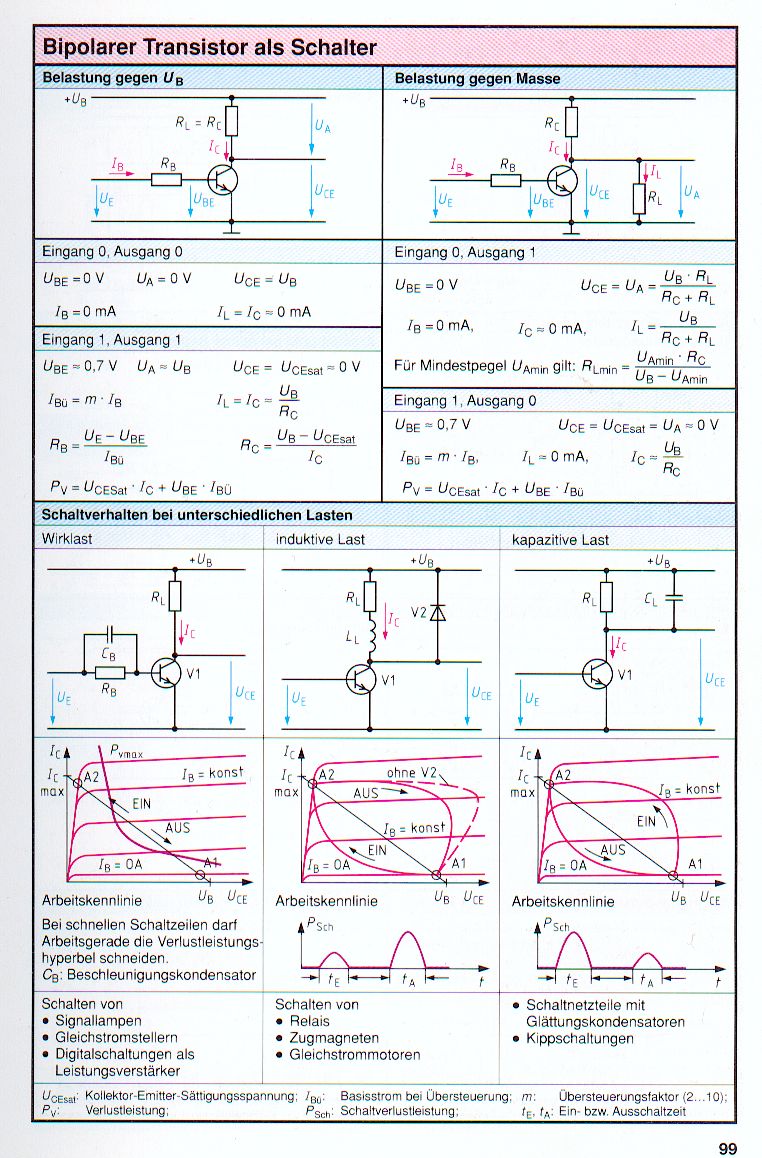 Bipolarer Transistor als Schalter
Belastung gegen U_B
+U_B
R_L = R_C
U_A
I_C
I_B
R_B
U_E
U_BE
U_CE
Eingang 0, Ausgang 0
U_BE = 0 V U_A = 0 V U_CE = U_B
I_B = 0 mA I_L = I_C ≈ 0 mA
Eingang 1, Ausgang 1
U_BE ≈ 0,7 V U_A ≈ U_B U_CE = U_CEsat ≈ 0 V
I_Bü = m · I_B I_L = I_C ≈ U_B / R_C
R_B = (U_E − U_BE) / I_Bü R_C = (U_B − U_CEsat) / I_C
P_V = U_CESat · I_C + U_BE · I_BÜ
Belastung gegen Masse
+U_B
R_C
I_C
I_B
R_B
I_L
U_E
U_BE
U_CE
R_L
U_A
Eingang 0, Ausgang 1
U_BE = 0 V U_CE = U_A = (U_B · R_L) / (R_C + R_L)
I_B = 0 mA, I_C ≈ 0 mA, I_L = U_B / (R_C + R_L)
Für Mindestpegel U_Amin gilt: R_Lmin = (U_Amin · R_C) / (U_B − U_Amin)
Eingang 1, Ausgang 0
U_BE ≈ 0,7 V U_CE = U_CEsat = U_A ≈ 0 V
I_Bü = m · I_B, I_L ≈ 0 mA, I_C ≈ U_B / R_C
P_V = U_CEsat · I_C + U_BE · I_Bü
Schaltverhalten bei unterschiedlichen Lasten
Wirklast
+U_B
R_L
I_C
C_B
R_B
V1
U_E
U_CE
I_C
P_vmax
I_C max
A2
I_B = konst
EIN
AUS
I_B = 0A
A1
U_B U_CE
Arbeitskennlinie
Bei schnellen Schaltzeilen darf
Arbeitsgerade die Verlustleistungs-
hyperbel schneiden.
C_B: Beschleunigungskondensator
Schalten von
• Signallampen
• Gleichstromstellern
• Digitalschaltungen als
Leistungsverstärker
induktive Last
+U_B
R_L
I_C
V2
L_L
V1
U_E
U_CE
I_C
I_C max
A2
ohne V2
AUS
I_B = konst
EIN
I_B = 0A
A1
U_B U_CE
Arbeitskennlinie
P_Sch
t_E
t_A
t
Schalten von
• Relais
• Zugmagneten
• Gleichstrommotoren
kapazitive Last
+U_B
R_L
C_L
I_C
V1
U_E
U_CE
I_C
I_C max
A2
I_B = konst
EIN
AUS
I_B = 0A
A1
U_B U_CE
Arbeitskennlinie
P_Sch
t_E
t_A
t
• Schaltnetzteile mit
Glättungskondensatoren
• Kippschaltungen
U_CEsat: Kollektor-Emitter-Sättigungsspannung; I_Bü: Basisstrom bei Übersteuerung; m: Übersteuerungsfaktor (2...10);
P_V: Verlustleistung; P_Sch: Schaltverlustleistung; t_E, t_A: Ein- bzw. Ausschaltzeit
99